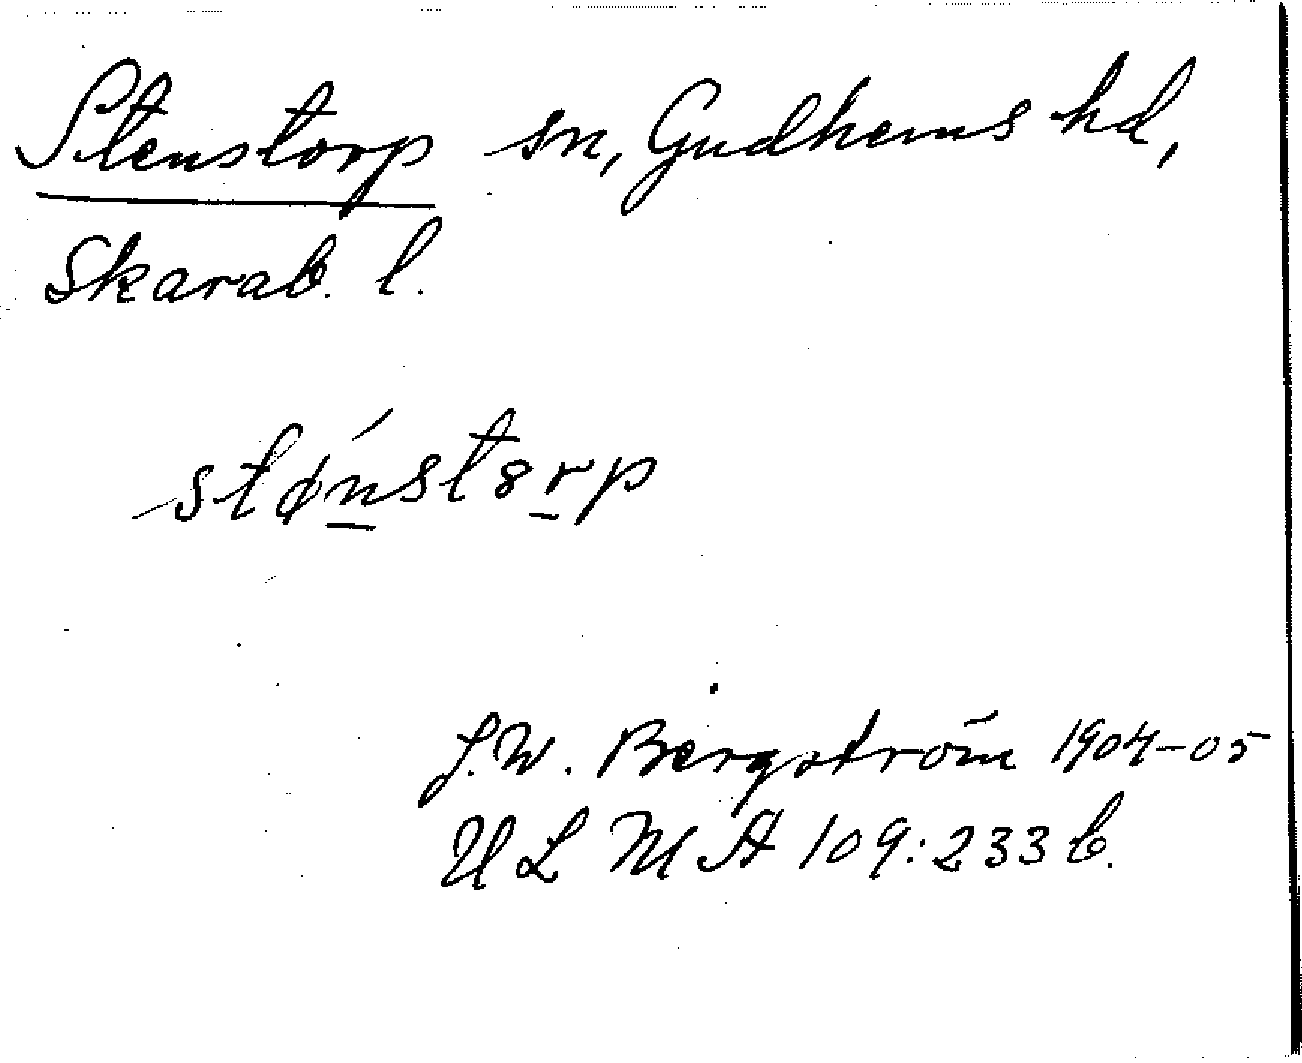 Stenstorp sn, Gudhems hd,
Skarab. l.
stǿnst8rp
J.W. Bergström 1904-05
ULMA 109:233 b.